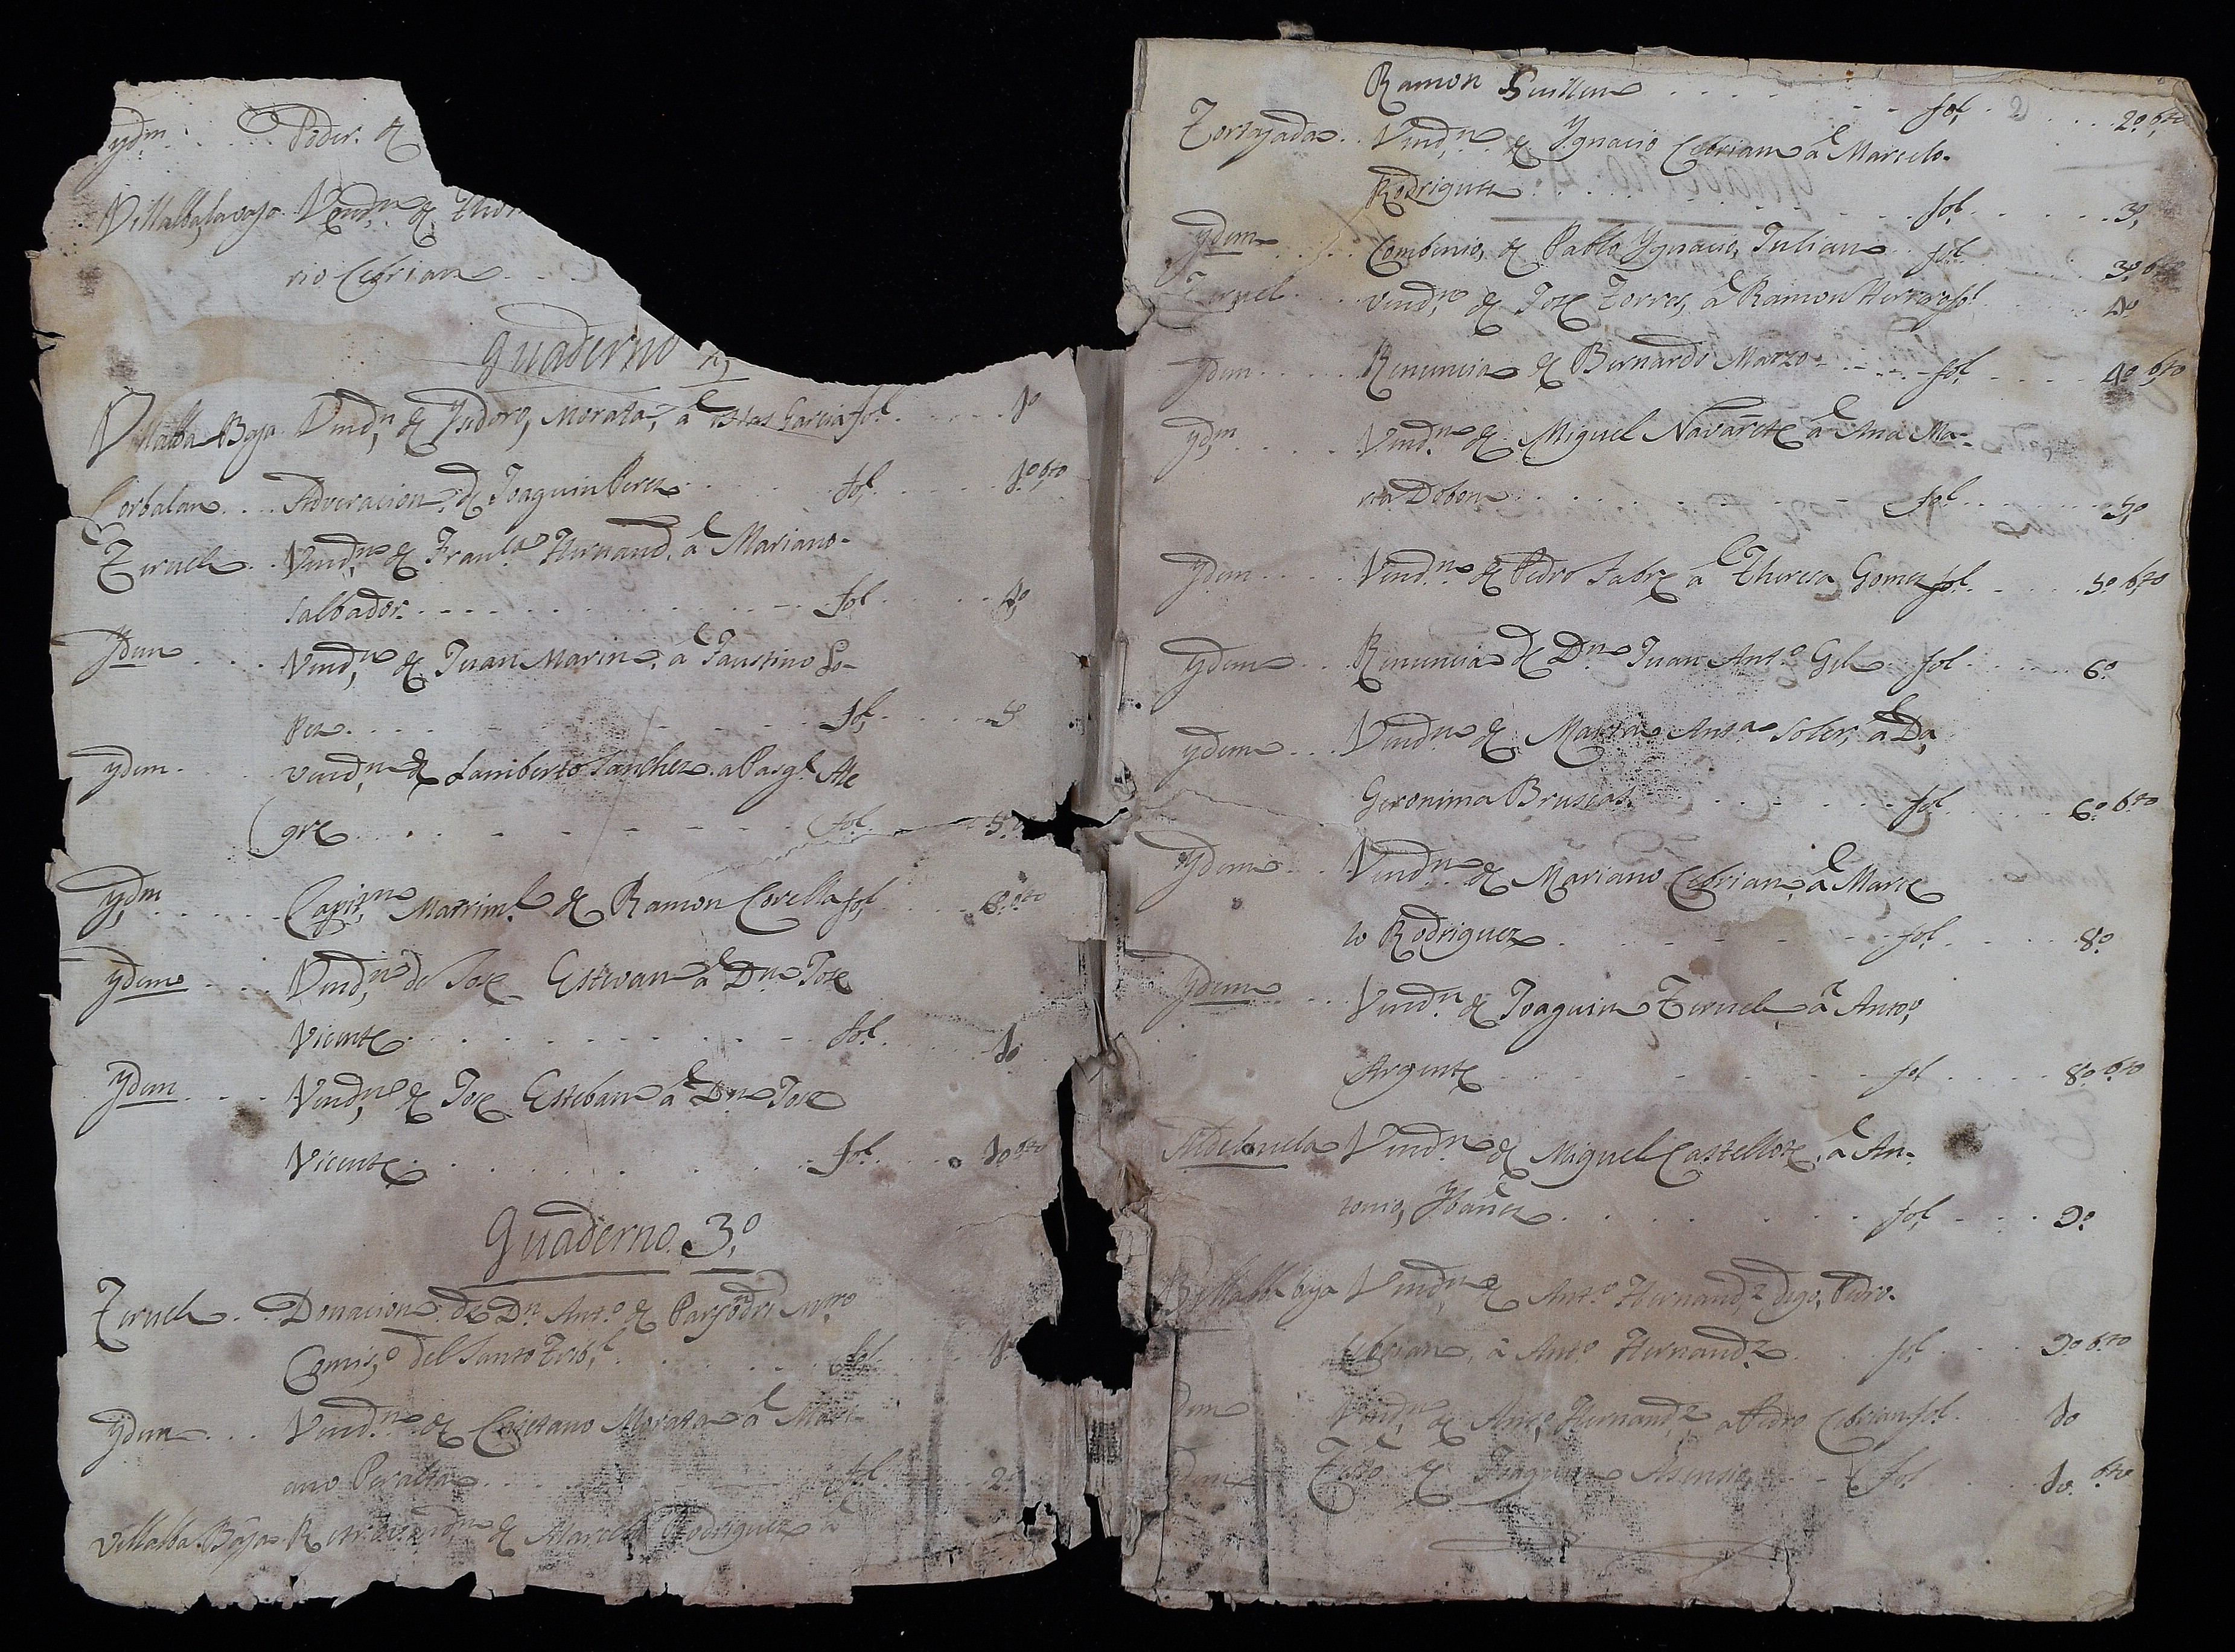 ydm . . . . Poder. de
Villalba la vaja Vend,n de Thom
rio Cebrian . .
Quaderno 2,
Villalba Baja Vend,n de Ysidoro, Morata, â Blas Garcia fol . . . . 1º
Corbalan . . . Adveracion de Joaquin Perez . . . fol, . . . . 1º bto
Teruel . . Vend,n de Fran.ca Hernand. â Mariano
Salbador . . . . . . fol . . . . 4º
Ydem . . . Vend,n de Juan Marin, â Faustino Lo-
pez . . . . . . fol, . . . . 5
ydem . Vend,n de Lamberto Sanchez a Pasql Ale
gre . . . . . . fol . . . . 5º
ydm . . . . Capit.n Matrim.l de Ramon Corella fol . . . . 6º bto
ydem . . . Vend,n de Jose Estevan â Dn Jose
Vicente . . . . . . fol . . . . 10
ydem . . . Vend,n de Jose Esteban â Dn Jose
Vicente . . . . . . fol . . . . 10 bto
Quaderno 3,º
Teruel . . Donacion de Dn Ant.º de
Comis,º del Santo Trib,l . . . . . . fol . . . . 1º
ydem . . . Vend.n de Cayetano Morata â Mari
ano Peralta . . . . . . fol . . . . 2º
Villalba Baja de Marcelo Rodriguez a
Ramon Guillen . . . . . . fol . 2 . . . 2º bto
Tortajada . . Vend,n de Ygnacio Cebrian â Marcelo
Rodriguez . . . . . . fol . . . . 3º
ydem . . . Combenio, de Pablo Ygnacio, Julian . . fol . . . . 3º bto
Teruel . . . Vend,n de Jose Torres, â Ramon Herrero fol . . . . 4º
ydem . . . . Renuncia de Bernardo Marzo . . . . fol, . . . . 4º bto
ydm . . . . Vend.n de Miguel Navarrete â Ana Ma-
ria Dobon . . . . . . fol . . . . 5º
ydem . . . . Vend.n de Pedro Fabre â Theresa Gomez fol . . . . 5º bto
ydem . . Renuncia de Dn Juan Ant.º Gil . . fol . . . . 6º
ydem . . . Vend.n de Maria Anta Soler, â Da,
Geronima Bruscas . . . . . . fol . . . . 6º bto
ydem . . . Vend.n de Mariano Cebrian, â Marce
lo Rodriguez . . . . . . fol . . . . 8º
ydem . . . Vend.n de Joaquin Teruel, â Antº,
Argente . . . . . . fol . . . . 8º bto
Aldehuela Vend.n de Miguel Castellote, â An-
tonio, Ybañez . . . . . . fol, . . . . 9º
Villalba baja Vend,n de Ant.º Hernand.z digo, Pedro
Cebrian, â Ant.º Hernand.z . . . fol . . . . 9º bto
ydem Vend,n de Ant,º Hernand,z a Pedro Cebrian fol . . 10
ydem Testº de Joaquin Asensio, . . . fol . . . . 10 bto